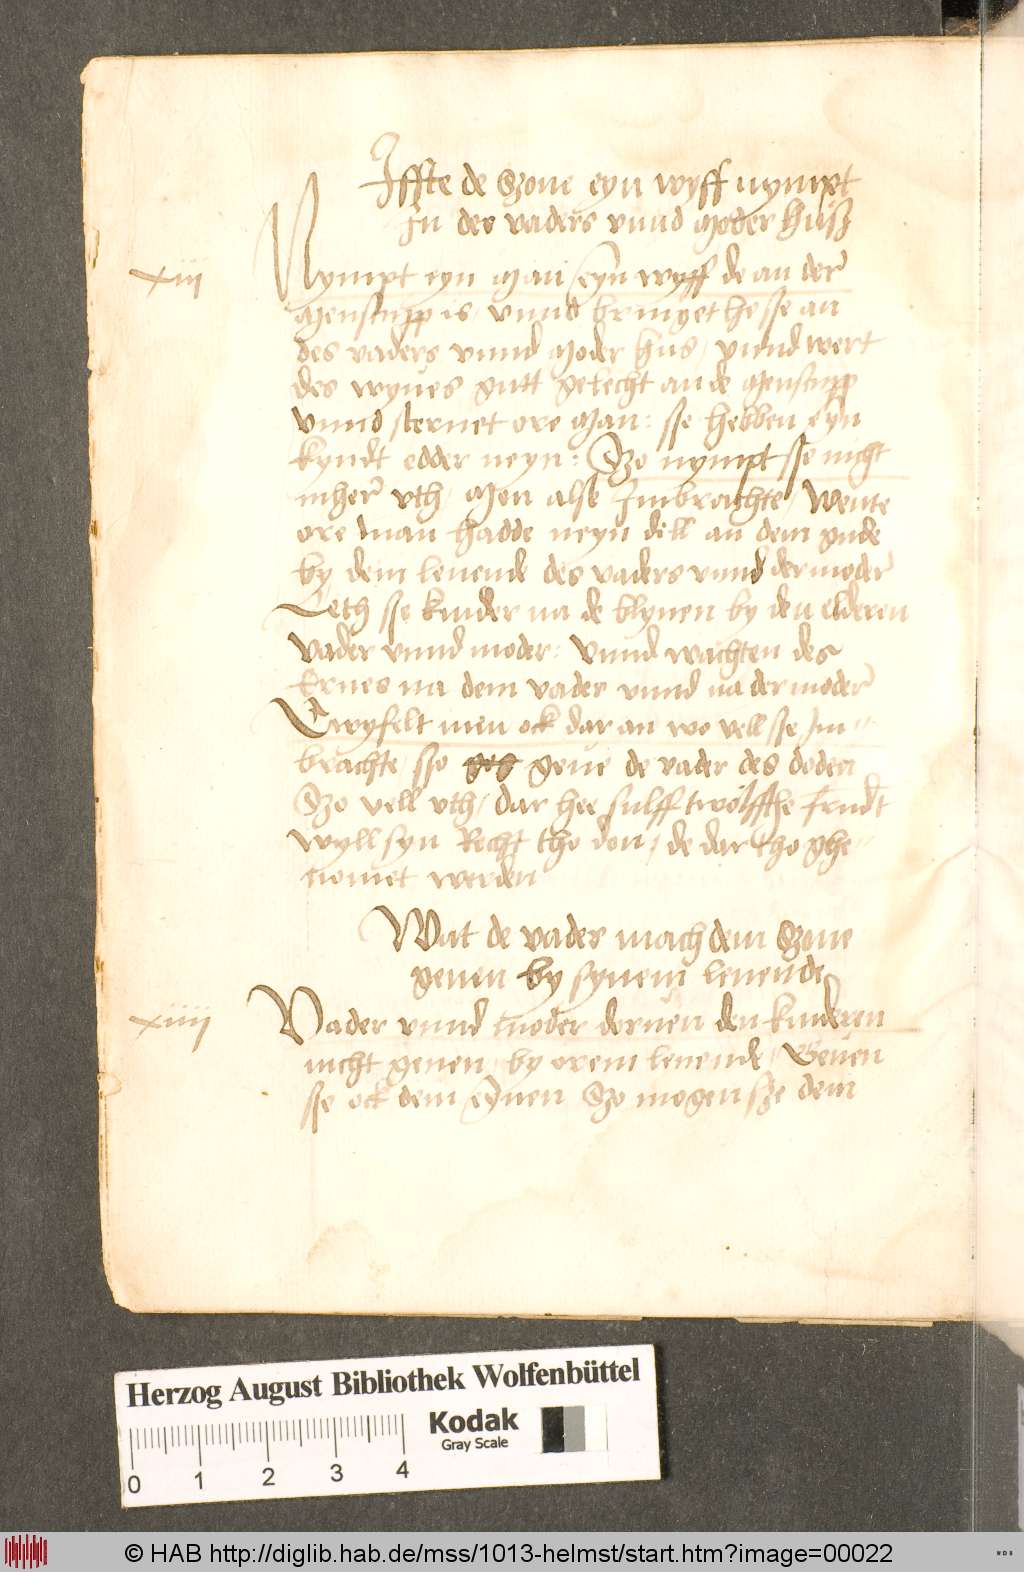 Iffte de Szone eyn wyff nympt
In des vaders vnnd Moder huß
xiii
Nympt eyn Man eyn wyff de an der
Menscupp is vnnd bringet hesse an
des vaders vnnd Moder hus / vnnd wert
des wyues gutt gelecht an de Menscupp
vnnd steruet ore Man: sse hebben eyn
kyndt edder neyn: Szo nympt sse nicht
mher vth / Men alse Inbrachte / Wente
ore man hadde neyn dell an dem gude
by dem leuende des vaders vnnd der moder
Leth sse kinder na de blyuen by den elderen
vader vnnd moder: vnnd wachten des
Erues na dem vader vnnd na der moder
Twyfelt men ock dar an wo vell sse In=
brachte / sso geue de vader des doden
Szo vell vth / dar hee sulff twolffthe frundt
wyll syn Recht tho don / de dar tho ghe=
nomet werden
Wat de vader mach dem Szone
geuen by synem leuende
xiiii
Vader vnnd moder doruen den kinderen
nicht geuen by orem leuende / Geuen
sse ock dem eynen Szo mogen sze dem
Herzog August Bibliothek Wolfenbüttel
Kodak
Gray Scale
0 1 2 3 4
© HAB http://diglib.hab.de/mss/1013-helmst/start.htm?image=00022